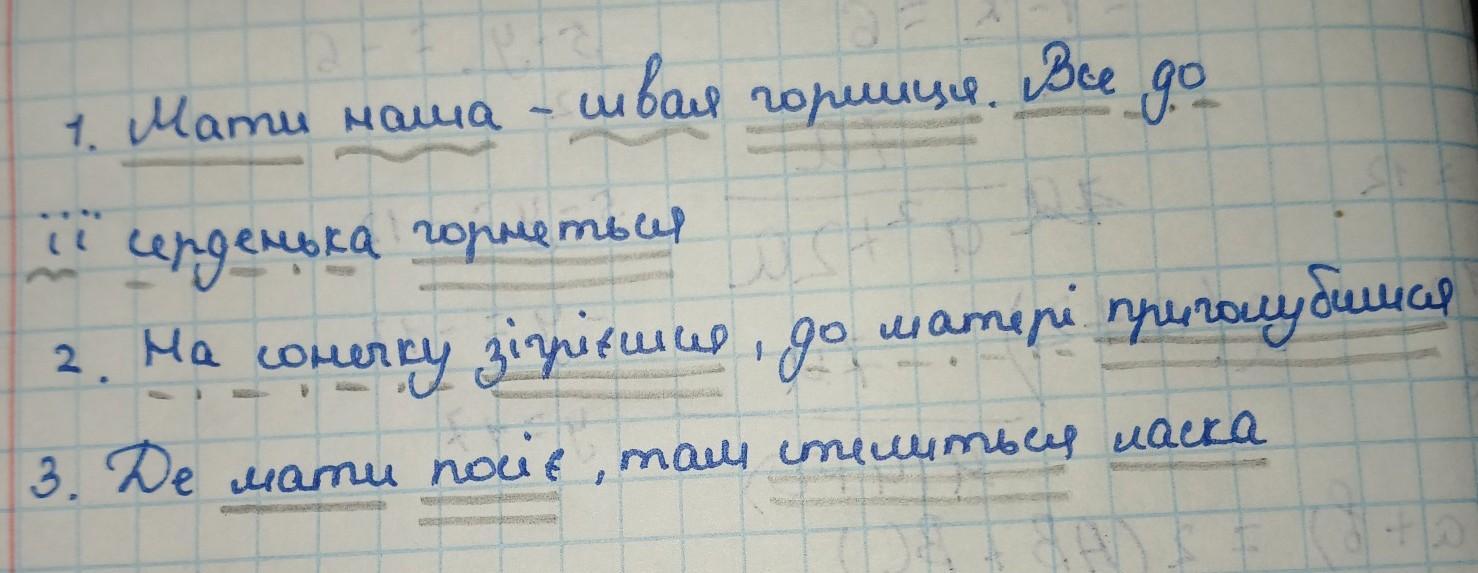 1. Мати наша – сивая горлиця. Все до
її серденька горнеться
2. На сонечку зігрієшся, до матері приголубишся
3. Де мати посіє, там стелиться ласка